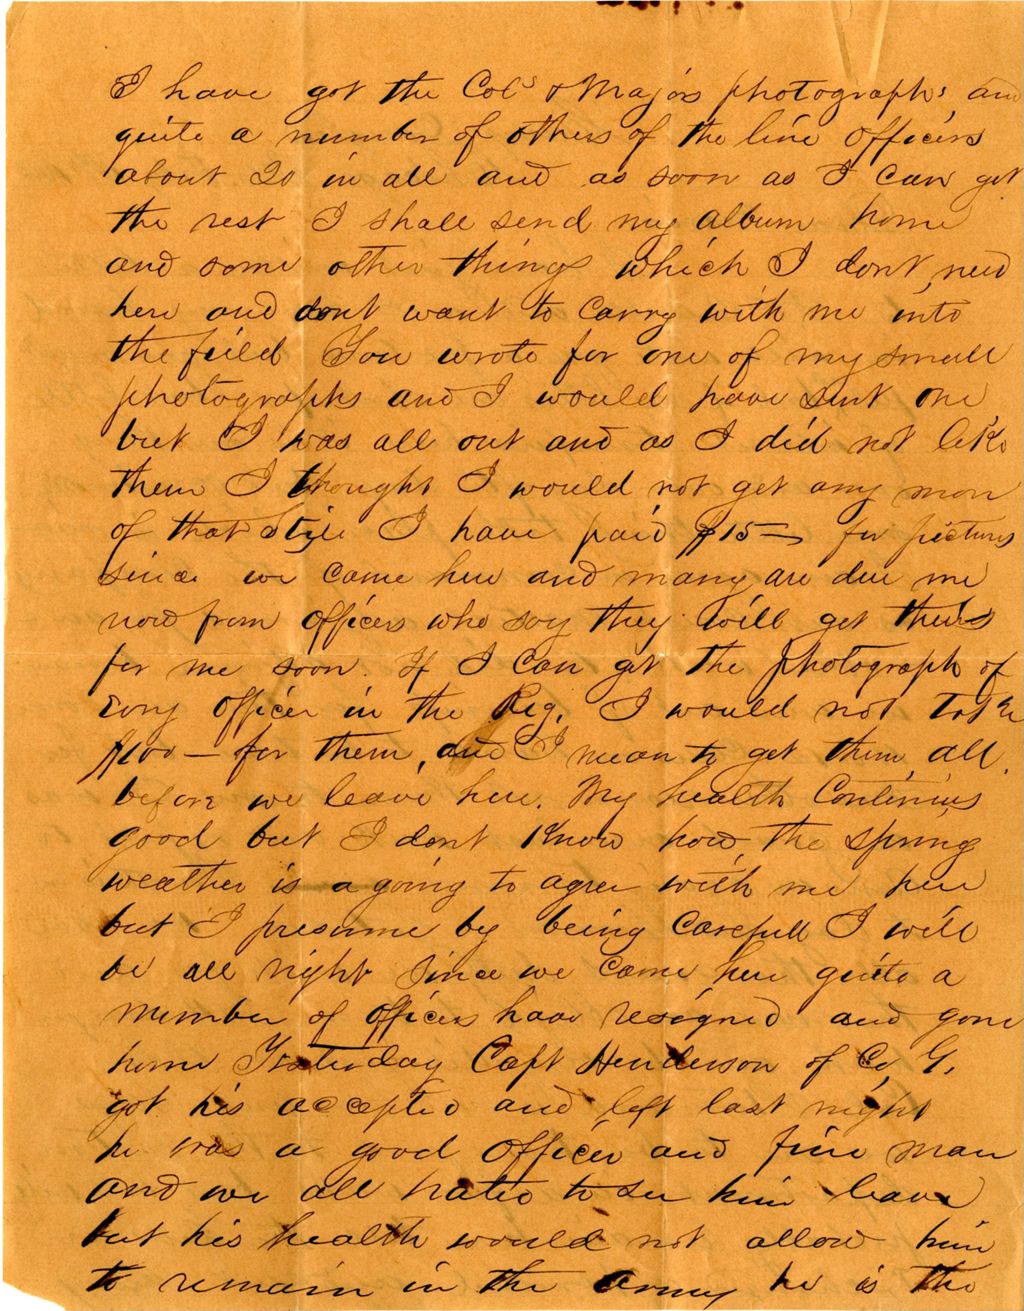 I have got the Cols & Majors photographs and
quite a number of others of the line officers
about 20 in all and as soon as I can get
the rest I shall send my album home
and some other things which I dont need
here and dont want to carry with me into
the feild You wrote for one of my small
photographs and I would have sent one
but I was all out and as I did not like
them I thought I would not get any more
of that stile I have paid $15— for pictures
since we came here and many are due me
now from officers who say they will get theirs
for me soon. If I can get the photograph of
evry officer in the Reg. I would not take
$100— for them, and I mean to get them all
before we leave here. My health continues
good but I dont know how the spring
weather is a going to agree with me here
but I presume by being carefull I will
be all right Since we came here quite a
number of officers have resigned and gone
home Yesterday Capt Henderson of Co, G.
got his accepted and left last night
he was a good officer and fine man
and we all hated to see him leave
but his health would not allow him
to remain in the army he is the